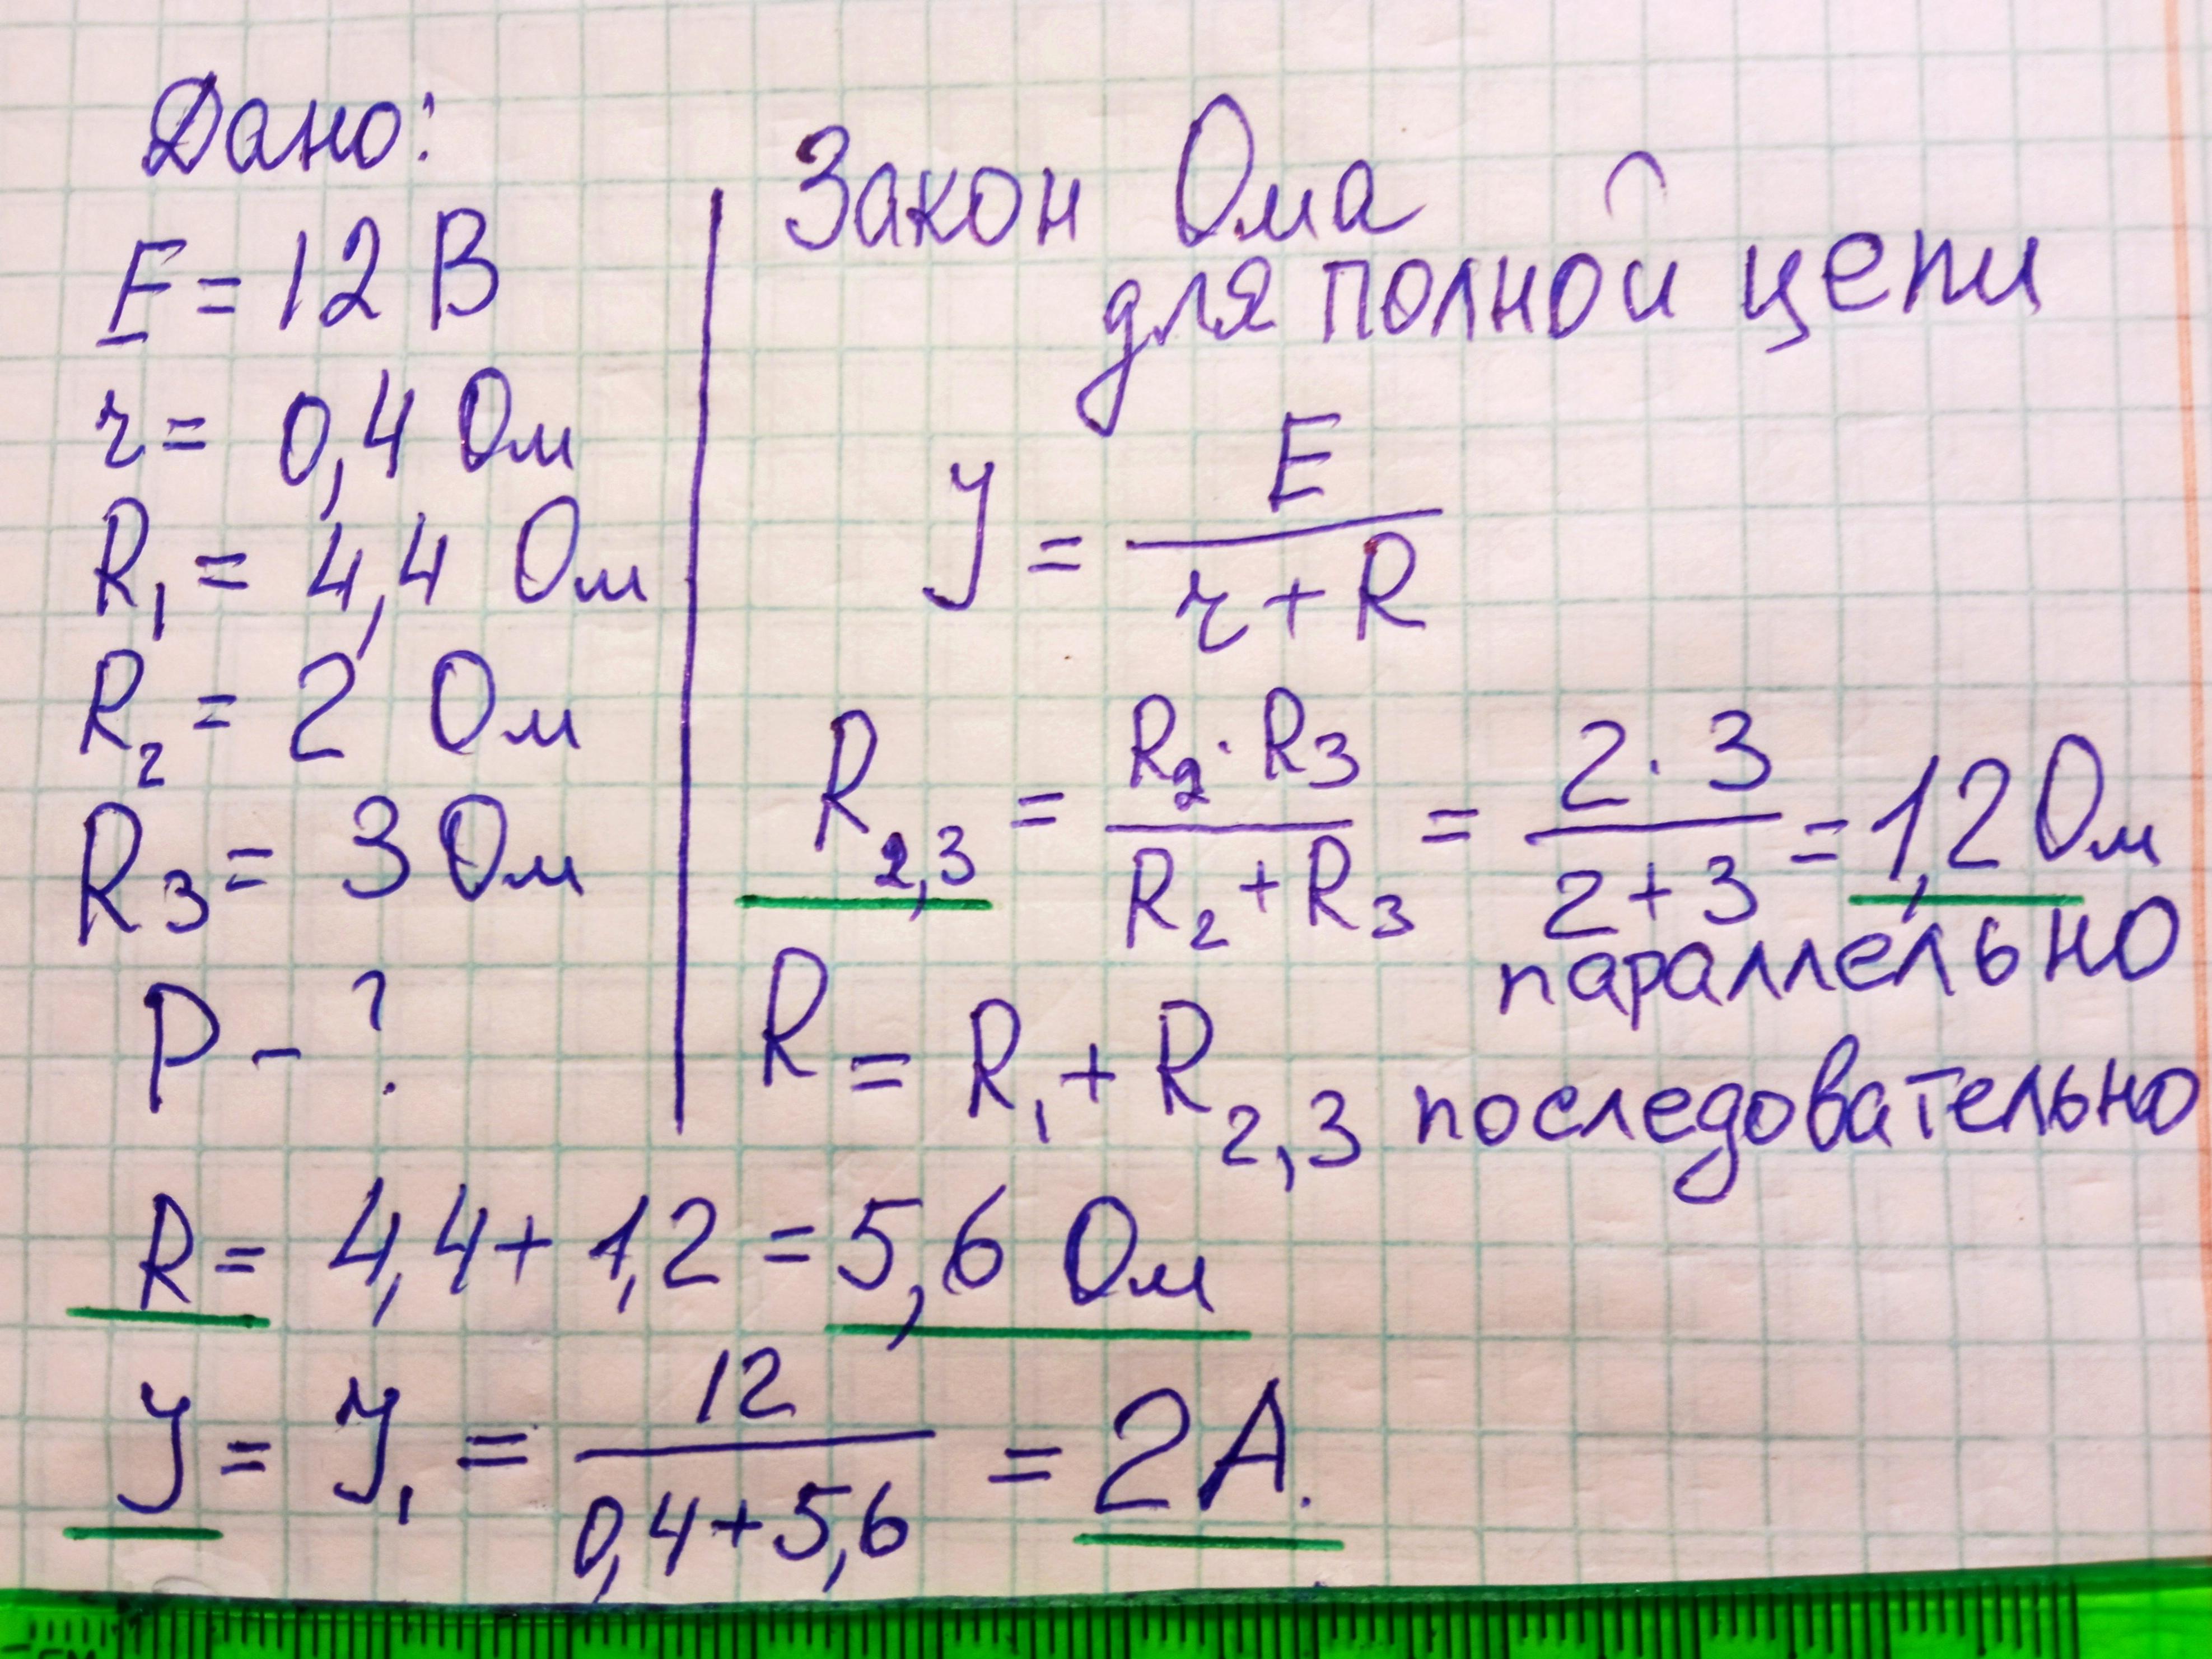 Дано:
E = 12 В
r = 0,4 Ом
R₁ = 4,4 Ом
R₂ = 2 Ом
R₃ = 3 Ом
P - ?
Закон Ома
для полной цепи
У = E / (r + R)
R₂,₃ = (R₂ · R₃) / (R₂ + R₃) = (2 · 3) / (2 + 3) = 1,2 Ом
параллельно
R = R₁ + R₂,₃ последовательно
R = 4,4 + 1,2 = 5,6 Ом
У = У₁ = 12 / (0,4 + 5,6) = 2 А.
см